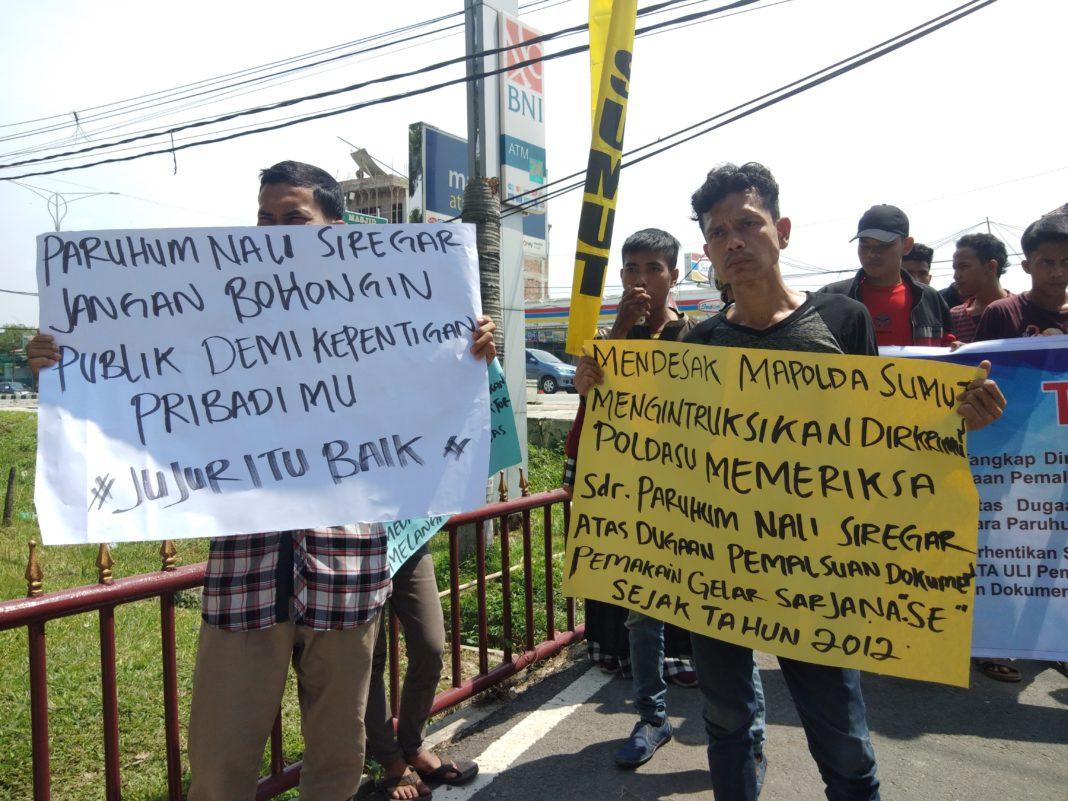 PARUHUM NALI SIREGAR
JANGAN BOHONGIN
PUBLIK DEMI KEPENTIGAN
PRIBADI MU
# JUJUR ITU BAIK #
MASJID
BNI
ATM
SUMUT
MENDESAK MAPOLDA SUMUT
MENGINTRUKSIKAN DIRKRIMUM
POLDASU MEMERIKSA
Sdr. PARUHUM NALI SIREGAR
ATAS DUGAAN PEMALSUAN DOKUMEN
PEMAKAIN GELAR SARJANA "SE"
SEJAK TAHUN 2012.
MELANG
T
angkap Dir
aan Pemal
tas Dugaa
ara Paruhu
erhentikan S
TA ULI Pem
n Dokumen